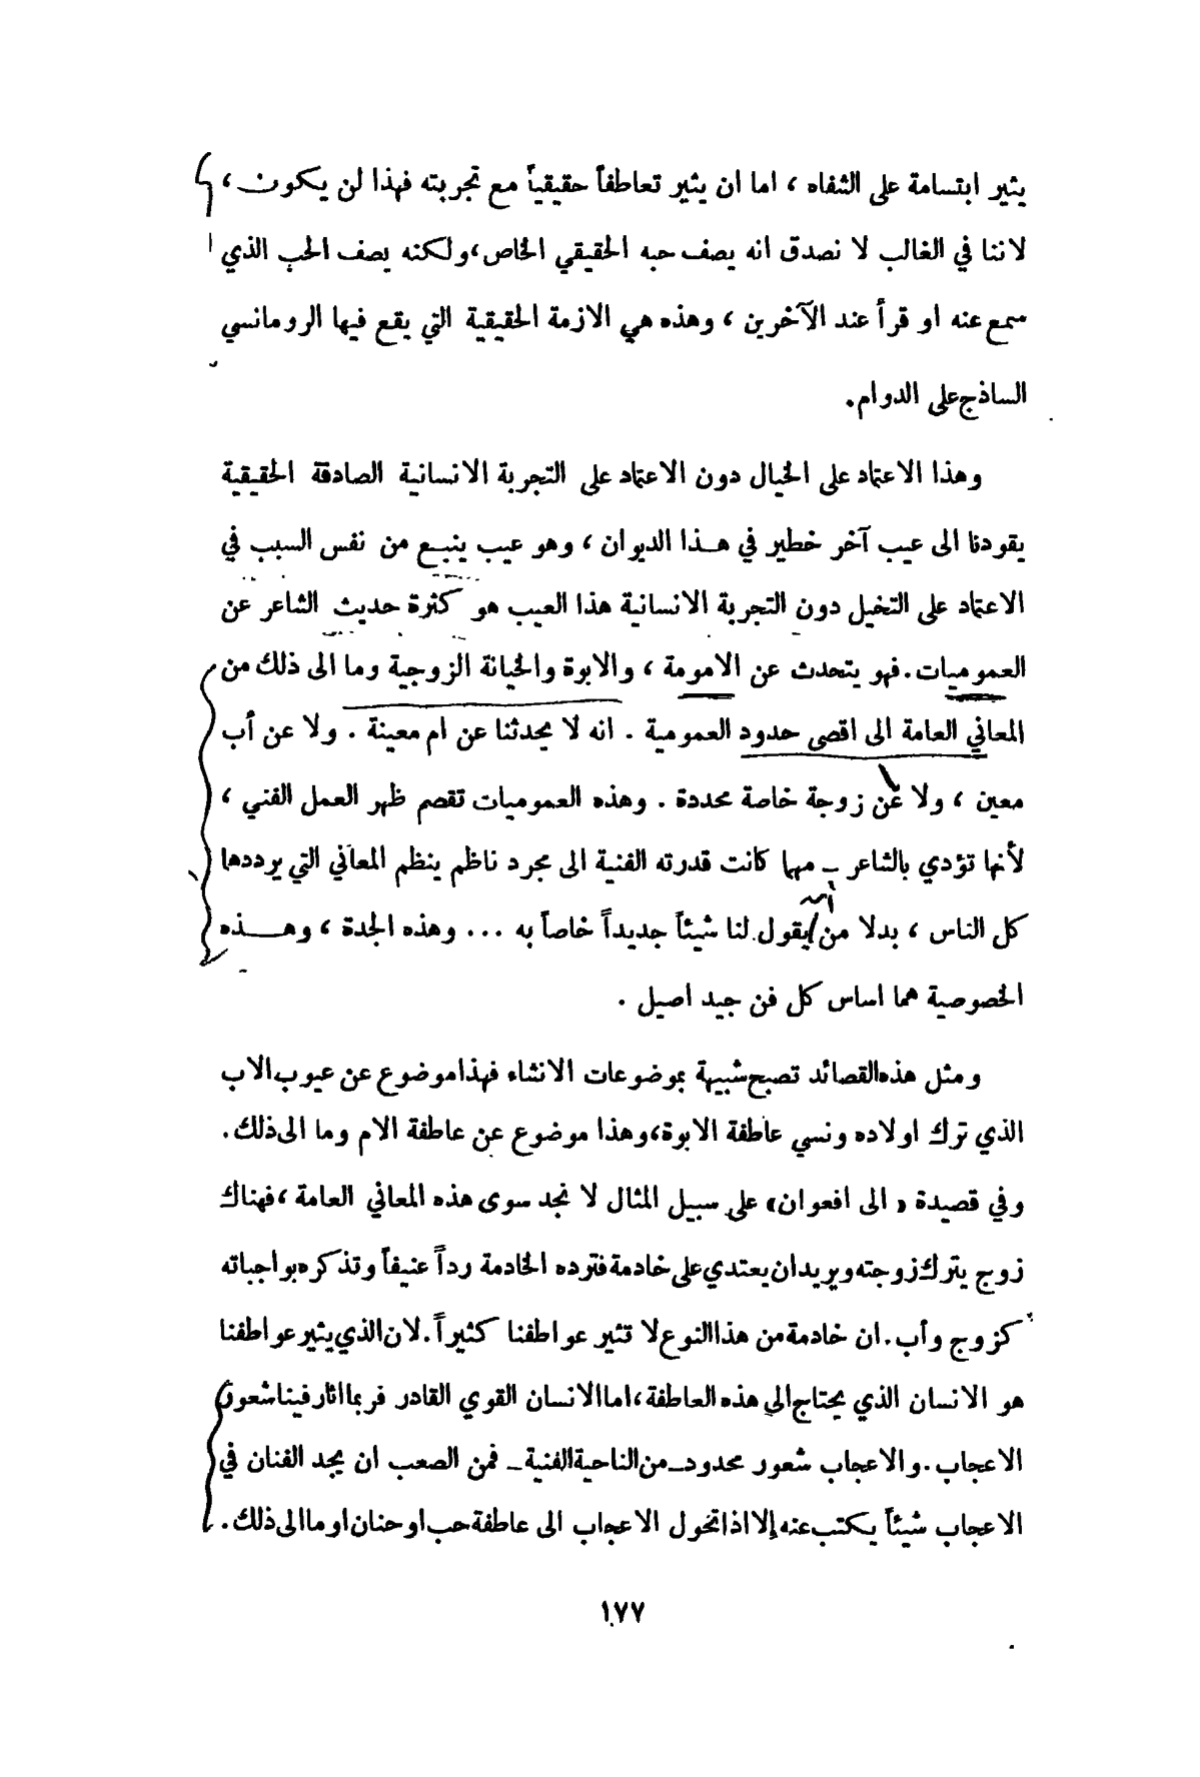 يثير ابتسامة على الشفاه ، اما ان يثير تعاطفاً حقيقياً مع تجربته فهذا لن يكون ،
لاننا في الغالب لا نصدق انه يصف حبه الحقيقي الخاص ، ولكنه يصف الحب الذي
سمع عنه او قرأ عند الآخرين ، وهذه هي الازمة الحقيقية التي يقع فيها الرومانسي
الساذج على الدوام.
وهذا الاعتماد على الخيال دون الاعتماد على التجربة الانسانية الصادقة الحقيقية
يقودنا الى عيب آخر خطير في هـذا الديوان ، وهو عيب ينبـع من نفس السبب في
الاعتماد على التخيل دون التجربة الانسانية هذا العيب هو كثرة حديث الشاعر عن
العموميات . فهو يتحدث عن الامومة ، والابوة والخيانة الزوجية وما الى ذلك من
المعاني العامة الى اقصى حدود العمومية . انه لا يحدثنا عن ام معينة . ولا عن أب
معين ، ولا عن زوجة خاصة محددة . وهذه العموميات تقصم ظهر العمل الفني ،
لأنها تؤدي بالشاعر ــ مهما كانت قدرته الفنية الى مجرد ناظم ينظم المعاني التي يرددها
أن
كل الناس ، بدلا من / يقول لنا شيئاً جديداً خاصاً به ... وهذه الجدة ، وهـــذه
الخصوصية هما اساس كل فن جيد اصيل .
ومثل هذه القصائد تصبح شبيهة بموضوعات الانشاء فهذا موضوع عن عيوب الاب
الذي ترك اولاده ونسي عاطفة الابوة ، وهذا موضوع عن عاطفة الام وما الى ذلك .
وفي قصيدة « الى افعوان » على سبيل المثال لا نجد سوى هذه المعاني العامة ، فهناك
زوج يترك زوجته ويريد ان يعتدي على خادمة فترده الخادمة رداً عنيفاً وتذكره بواجباته
كزوج وأب . ان خادمة من هذا النوع لا تثير عواطفنا كثيراً . لان الذي يثير عواطفنا
هو الانسان الذي يحتاج الى هذه العاطفة ، اما الانسان القوي القادر فربما اثار فينا شعور
الاعجاب . والاعجاب شعور محدود ــ من الناحية الفنية ــ فمن الصعب ان يجد الفنان في
الاعجاب شيئاً يكتب عنه إلا اذا تحول الاعجاب الى عاطفة حب او حنان او ما الى ذلك .
١٧٧